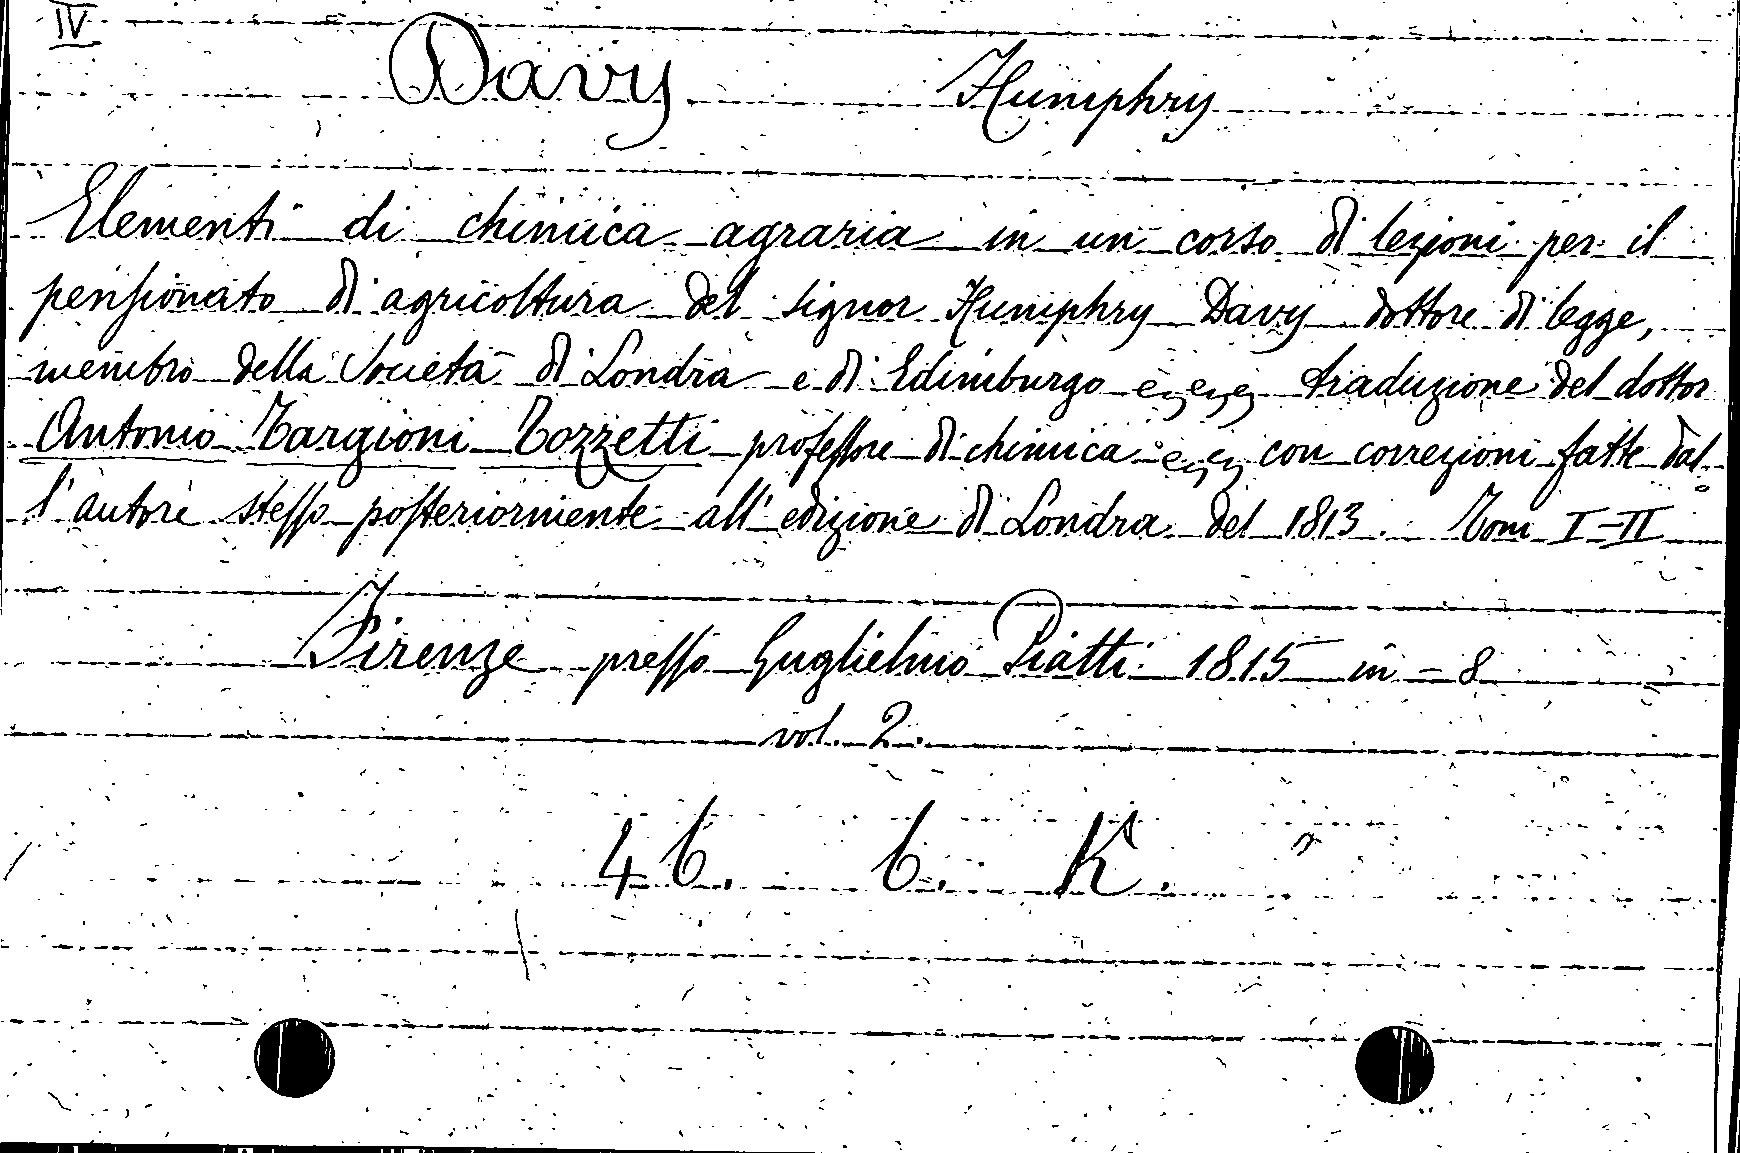 IV
Davy Humphry
Elementi di chimica agraria in un corso di lezioni per il
pensionato di agricoltura del signor Humphry Davy dottore di legge,
membro della Società di Londra e di Edimburgo traduzione del dottor
Antonio Targioni Tozzetti professore di chimica con correzioni fatte dal
l'autore stesso posteriormente all'edizione di Londra del 1813. Tom I-II
Firenze presso Guglielmo Piatti 1815 in-8
vol. 2.
46. 6. K.